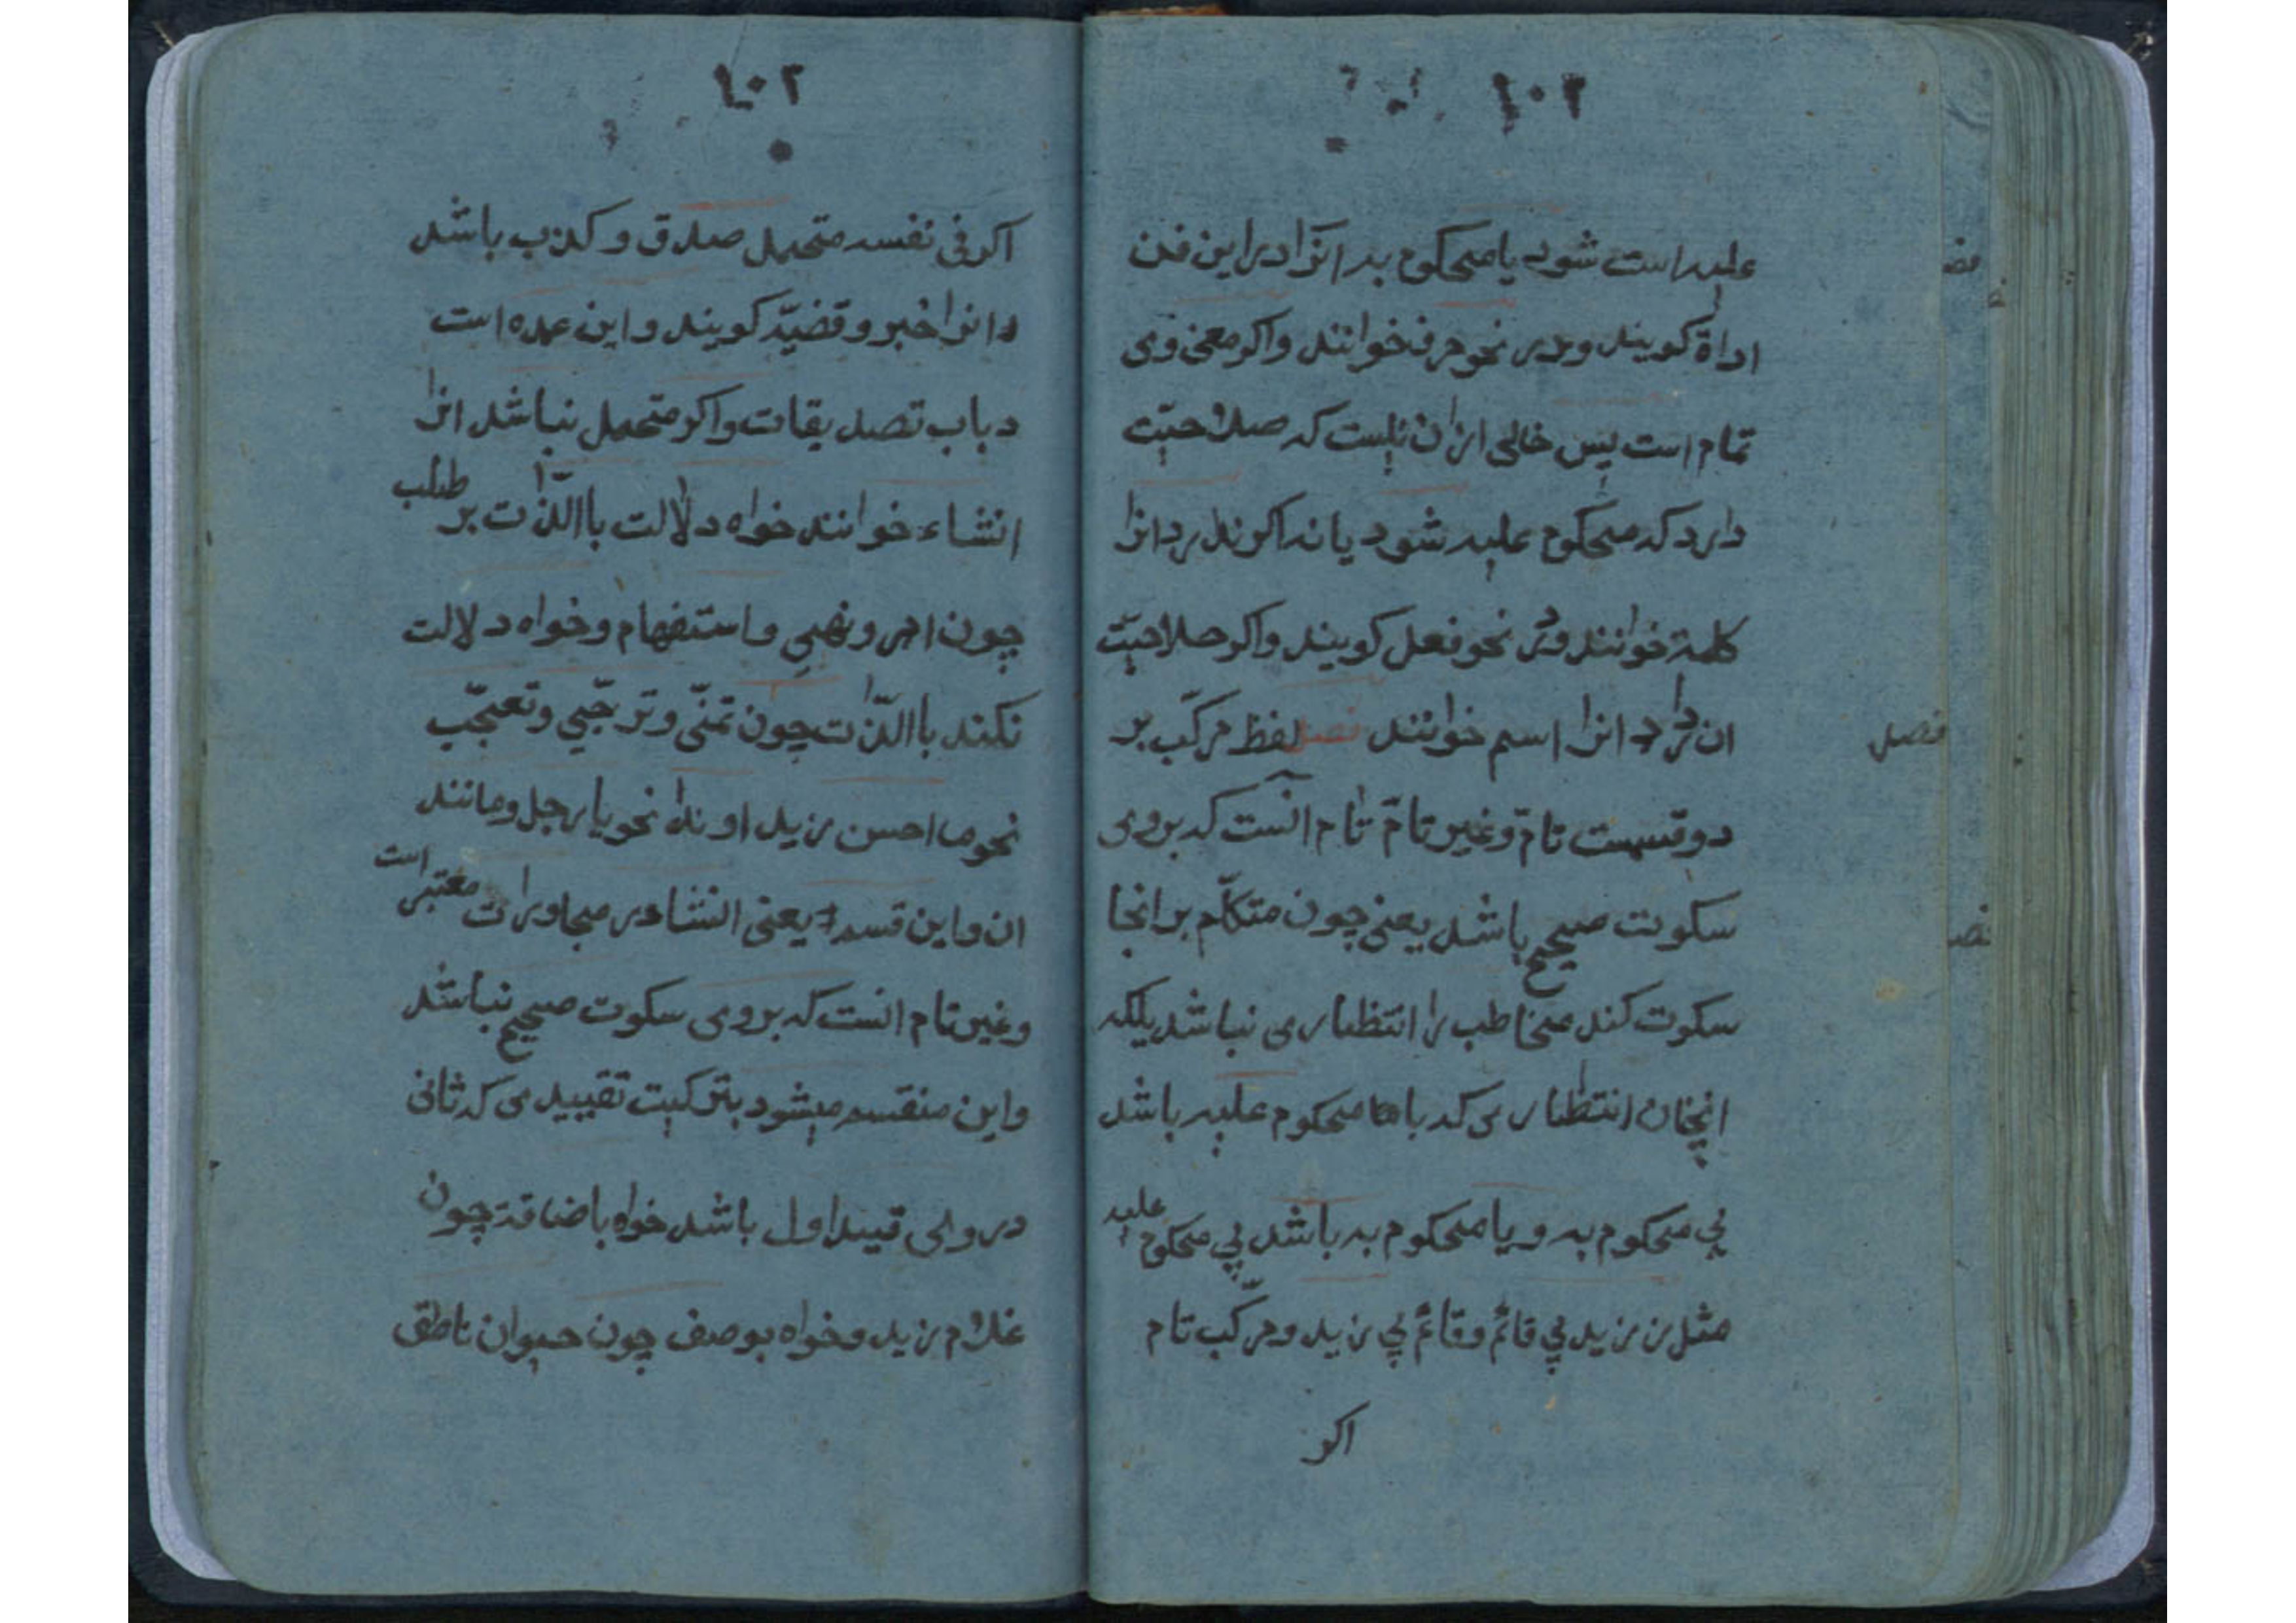 ١٠٢
علیه است شود یا محکوم به انرا در این فن
اداة کویند و در نحو حرف خوانند واکر معنی وی
تمام است پس خالی از ان نیست که صلاحیّت
دارد که محکوم علیه شود یا نه اکر ندارد انرا
کلمة خوانند و در نحو فعل کویند واکر صلاحیّت
ان دارد انرا اسم خوانند فصل لفظ مرکّب بر
فصل
دو قسمست تامّ و غیر تامّ تام انست که بروی
سکوت صحیح باشد یعنی چون متکلّم بر انجا
سکوت کند مخاطب را انتظاری نباشد بلکه
انچنان انتظاری که با محکوم علیه باشد
بی محکوم به و یا محکوم به باشد بی محکوم علیه
مثل زید بی قائم وقائم بی زید ومرکّب تام
اکر
١٠٢
اکر فی نفسه متحمل صدق و کذب باشد
انرا خبر و قضیّه کویند و این عمده است
د باب تصدیقات واکر متحمل نباشد انرا
انشاء خوانند خواه دلالت باالذّات بر طلب
چون امر و نهی و استفهام وخواه دلالت
نکند باالذّات چون تمنّی و ترجّیی وتعجّب
نحو ما احسن زید او ندا نحو یا رجل ومانند
ان و این قسم یعنی انشا در محاورات معتبر است
وغیر تام انست که بروی سکوت صحیح نباشد
واین منقسم میشود بترکیبت تقییدی که ثانی
در وی قیند اول باشد خواه باضافة چون
غلام زید وخواه بوصف چون حیوان ناطق